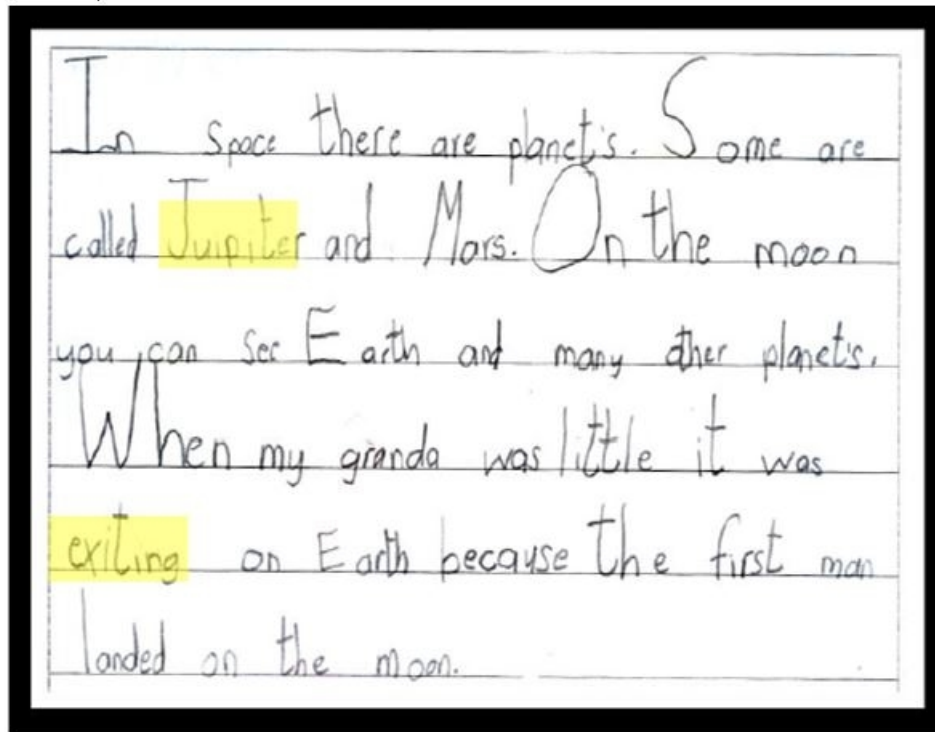 In space there are planet's. Some are
called Juipiter and Mars. On the moon
you can see Earth and many other planet's.
When my granda was little it was
exiting on Earth because the first man
landed on the moon.